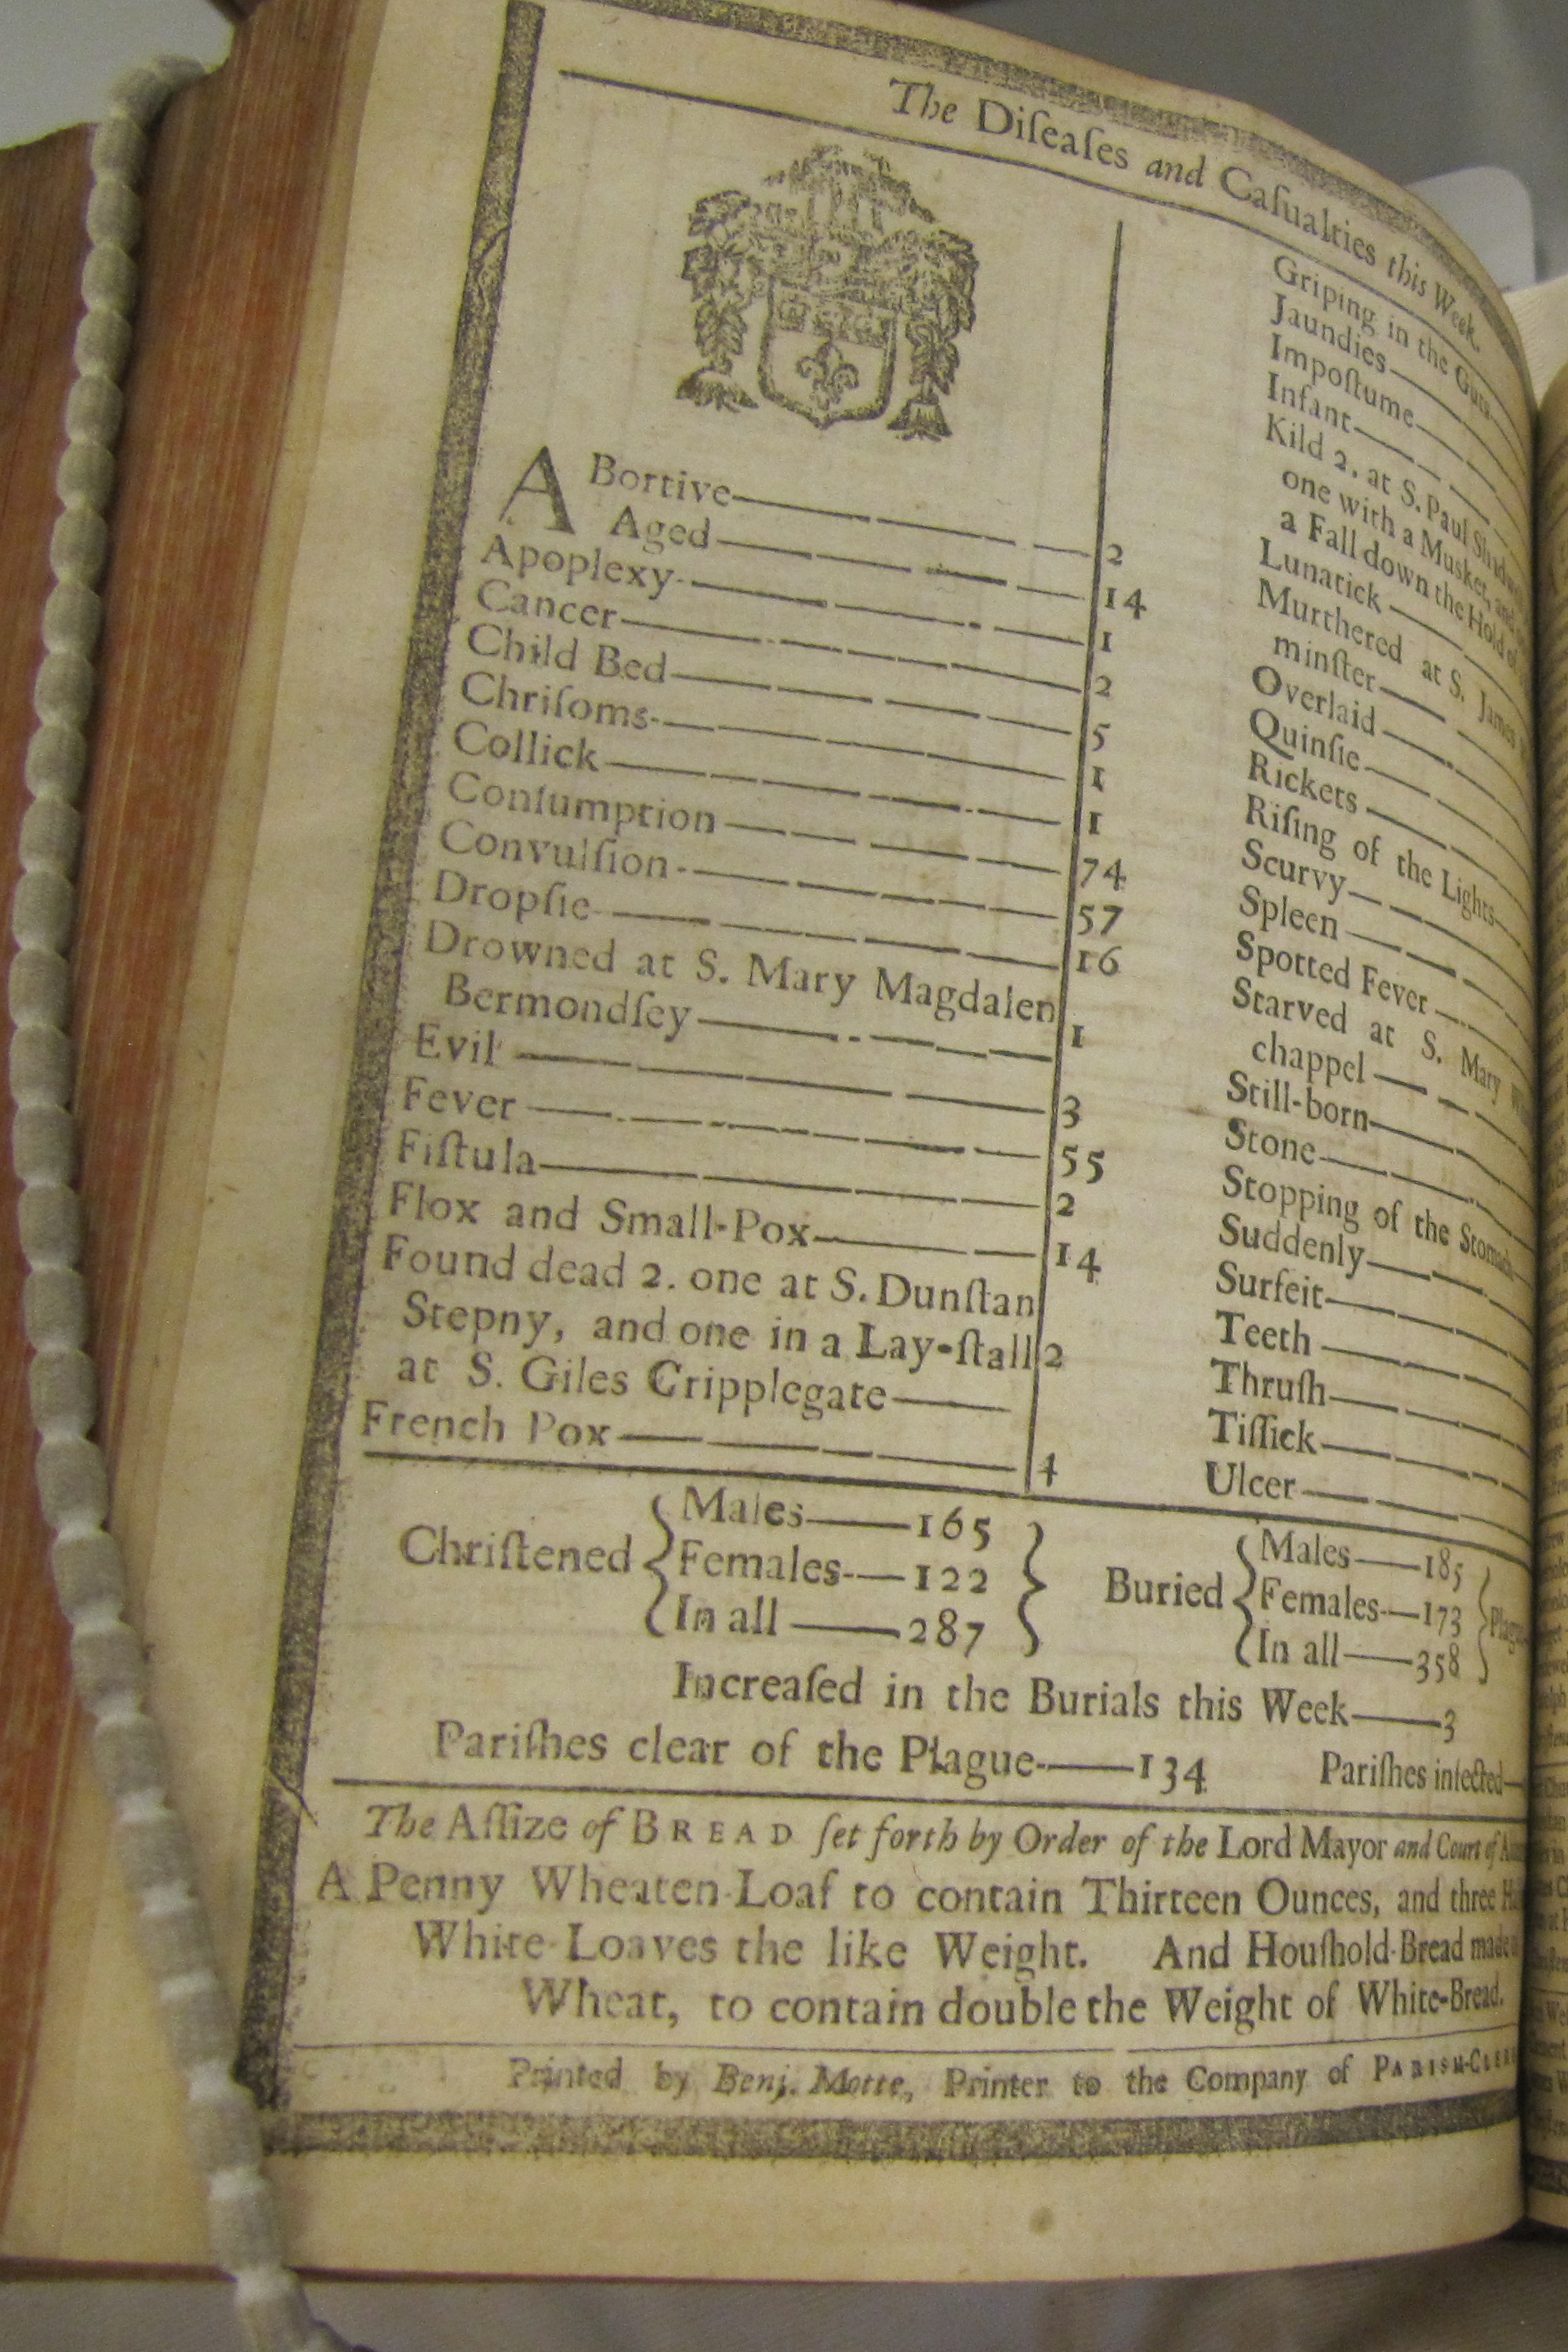 The Diſeaſes and Caſualties this Week.
ABortive 2
Aged 14
Apoplexy 1
Cancer 2
Child Bed 5
Chriſoms 1
Collick 1
Conſumption 74
Convulſion 57
Dropſie 16
Drowned at S. Mary Magdalen
Bermondſey 1
Evil 3
Fever 55
Fiſtula 2
Flox and Small-Pox 14
Found dead 2. one at S. Dunſtan
Stepny, and one in a Lay-ſtall 2
at S. Giles Cripplegate
French Pox 4
Griping in the Guts
Jaundies
Impoſtume
Infant
Kild 2. at S. Paul
one with a Musket, and
a Fall down the Hold of
Lunatick
Murthered at S. James
minſter
Overlaid
Quinſie
Rickets
Riſing of the Lights
Scurvy
Spleen
Spotted Fever
Starved at S. Mary
chappel
Still-born
Stone
Stopping of the Stomach
Suddenly
Surfeit
Teeth
Thruſh
Tiſſick
Ulcer
Chriſtened { Males 165
Females 122
In all 287 }
Buried { Males 185
Females 173
In all 358 }
Increaſed in the Burials this Week 3
Pariſhes clear of the Plague 134 Pariſhes infected
The Aſſize of BREAD ſet forth by Order of the Lord Mayor and Court of
A Penny Wheaten Loaf to contain Thirteen Ounces, and three
White Loaves the like Weight. And Houſhold-Bread made
Wheat, to contain double the Weight of White-Bread.
Printed by Benj. Motte, Printer to the Company of